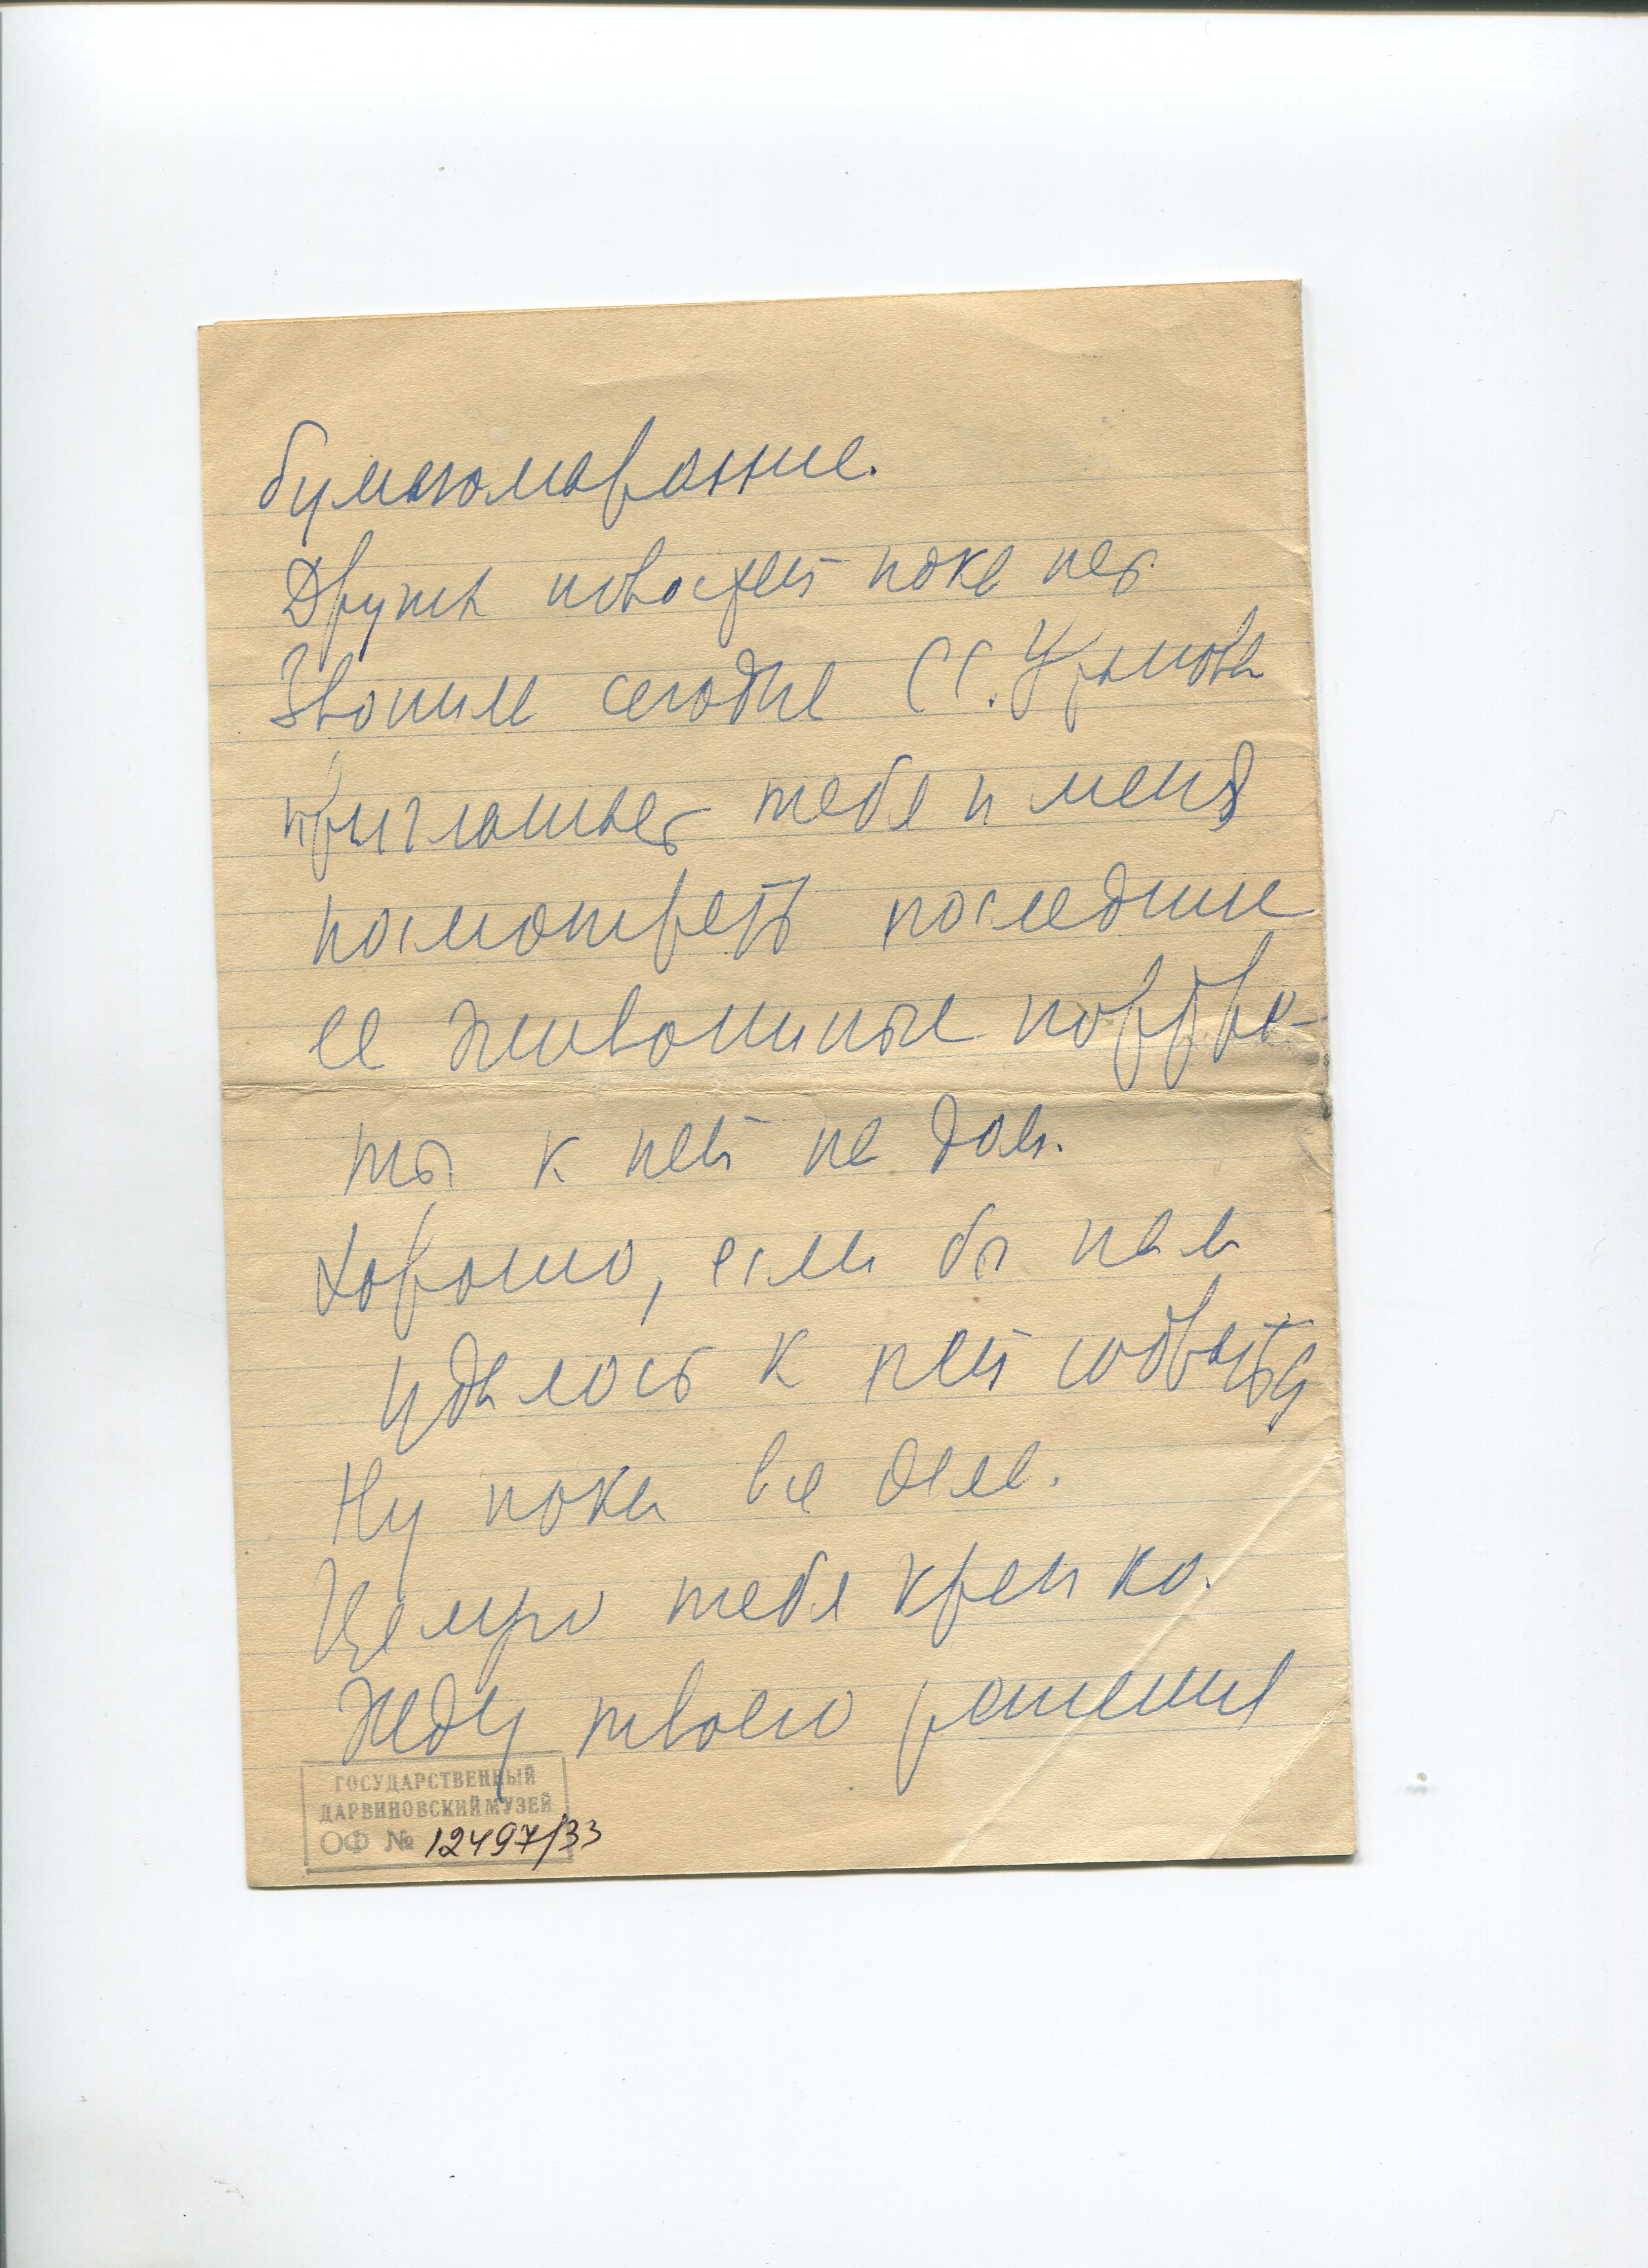 бумагомарание.
Других новостей пока нет
Звонила сегодня СС. Уранова
приглашает тебя и меня
посмотреть последние
ее живописные портре-
ты к ней на дом.
Хорошо, если бы нам
удалось к ней собраться
Ну пока все дела.
Целую тебя крепко.
Жду твоего решения
ГОСУДАРСТВЕННЫЙ
ДАРВИНОВСКИЙ МУЗЕЙ
ОФ № 12497/33